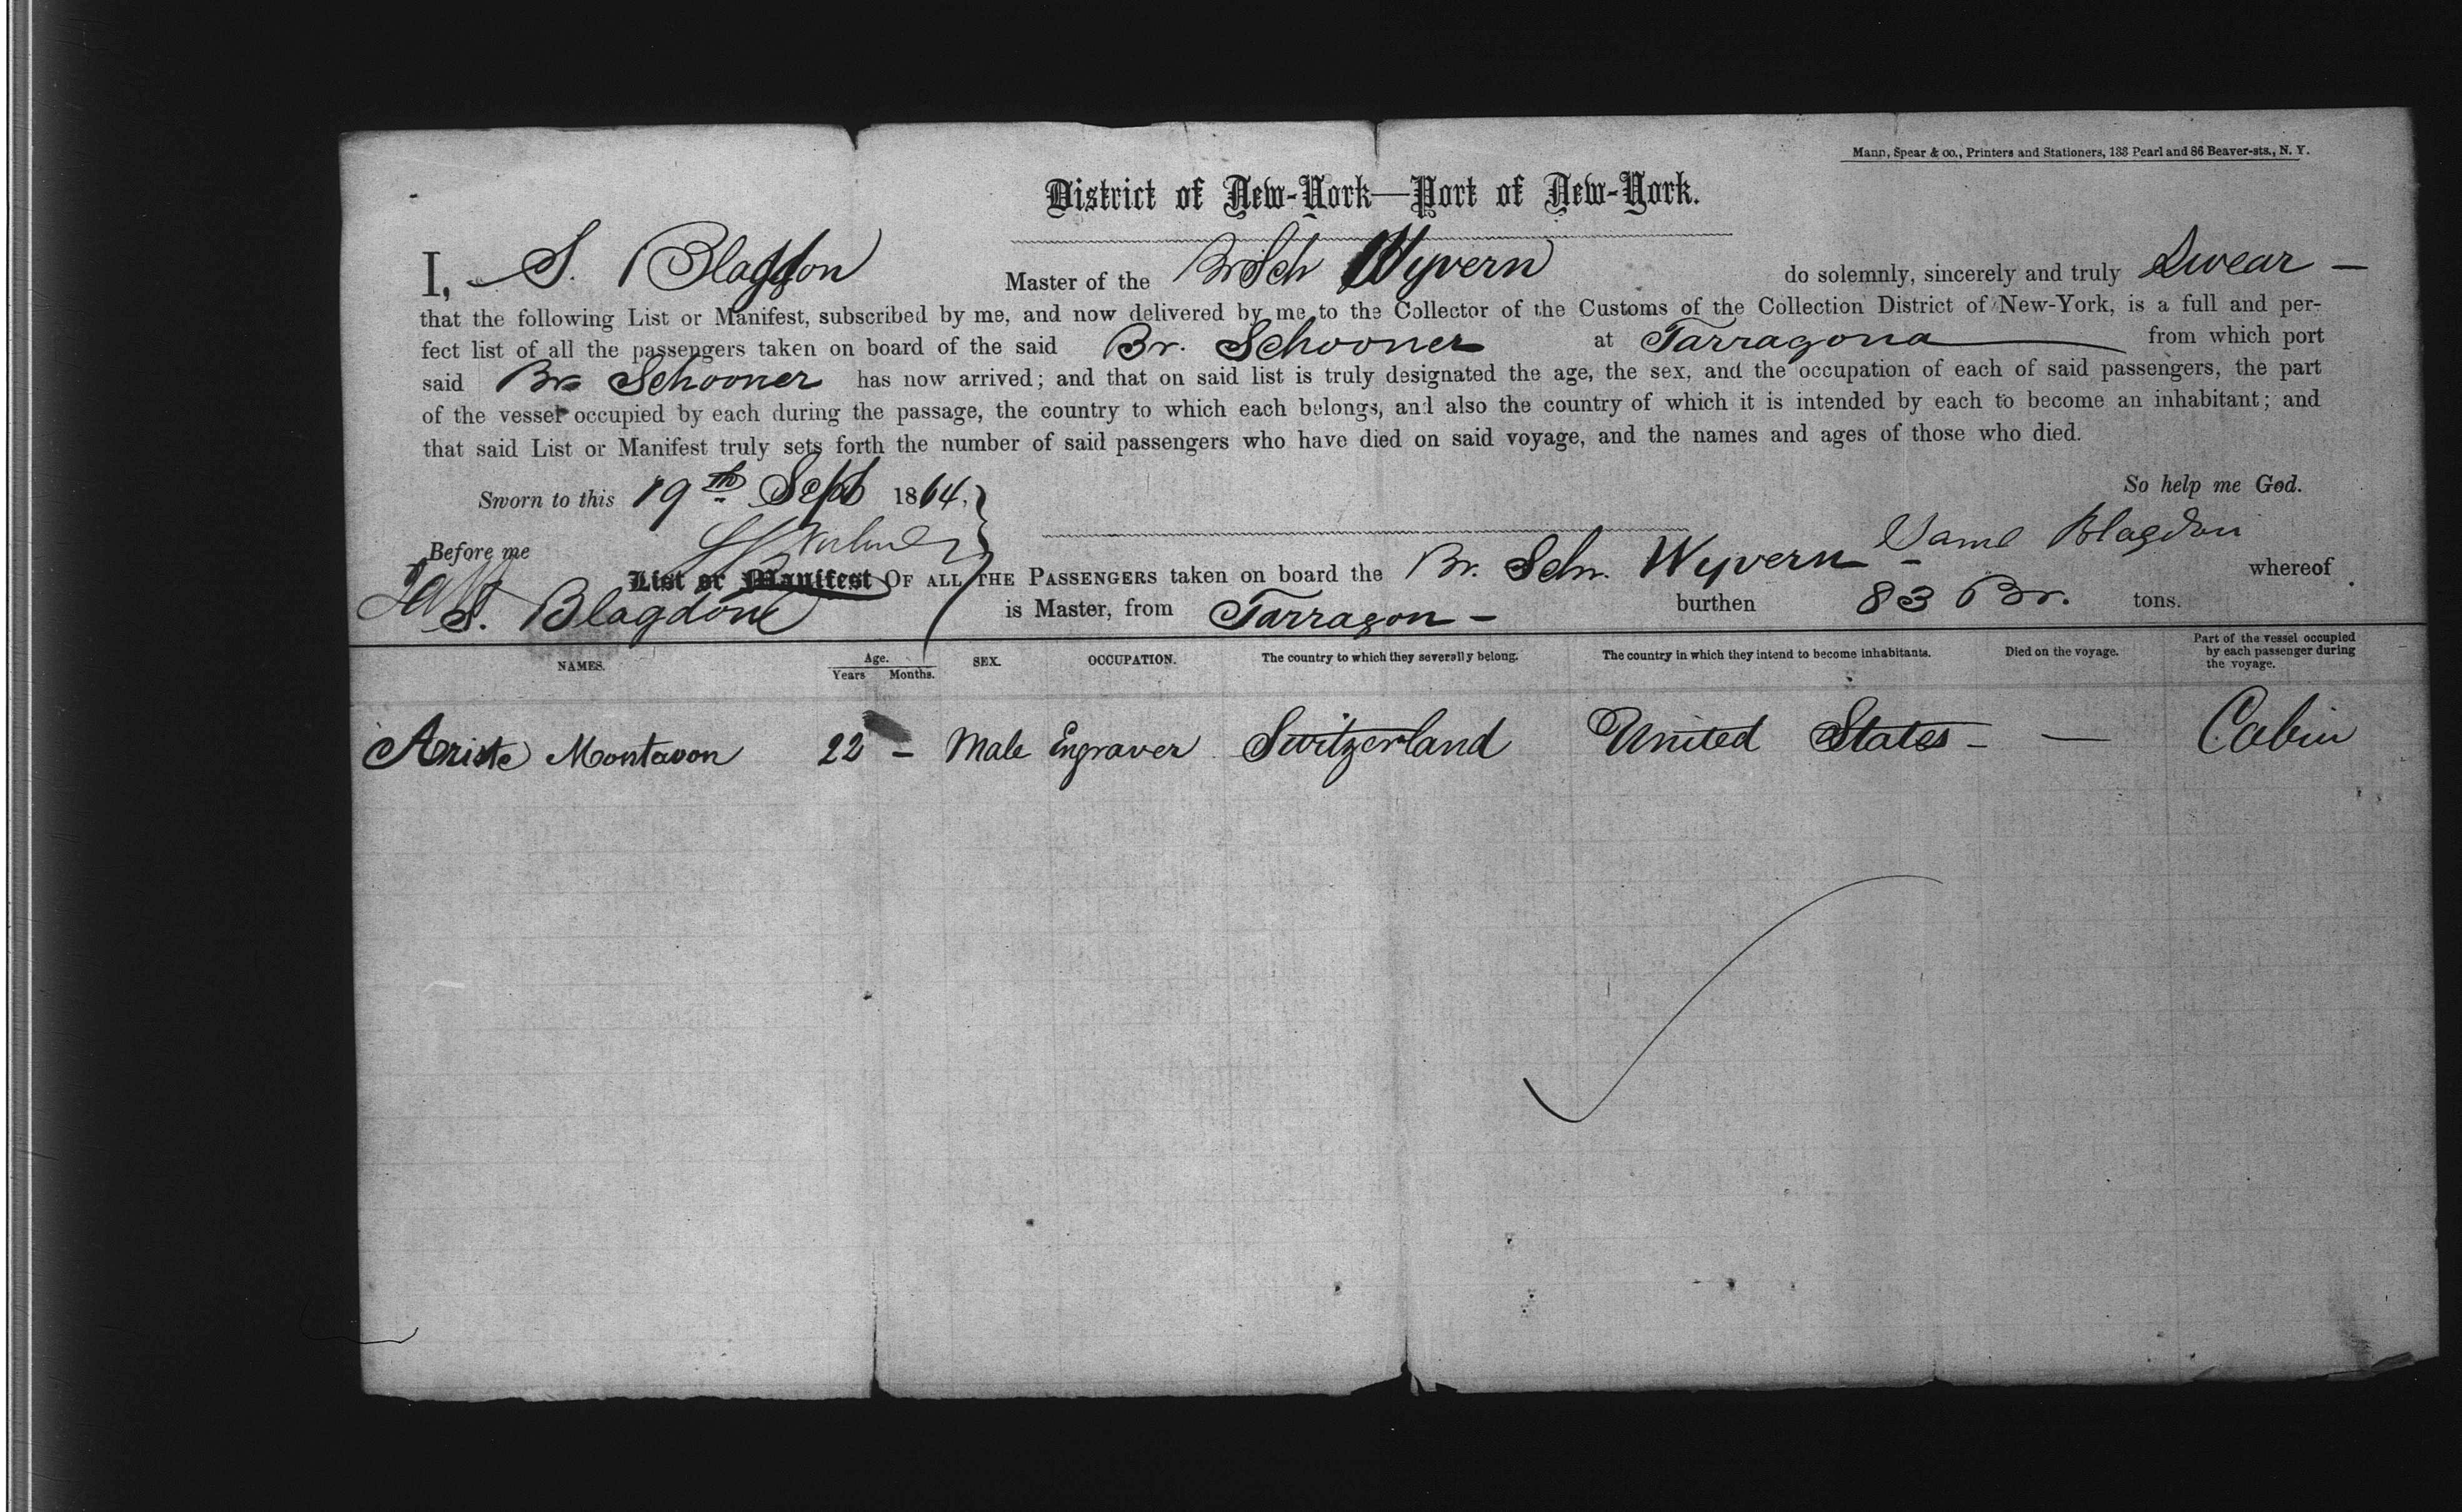 Mann, Spear & co., Printers and Stationers, 133 Pearl and 86 Beaver-sts., N. Y.
District of New-York—Port of New-York.
I, S. Blagdon Master of the Br Sch Wyvern do solemnly, sincerely and truly Swear —
that the following List or Manifest, subscribed by me, and now delivered by me to the Collector of the Customs of the Collection District of New-York, is a full and per-
fect list of all the passengers taken on board of the said Br. Schooner at Tarragona from which port
said Br Schooner has now arrived; and that on said list is truly designated the age, the sex, and the occupation of each of said passengers, the part
of the vessel occupied by each during the passage, the country to which each belongs, and also the country of which it is intended by each to become an inhabitant; and
that said List or Manifest truly sets forth the number of said passengers who have died on said voyage, and the names and ages of those who died.
Sworn to this 19th Sept 1864. So help me God.
Before me Saml Blagdon
List or Manifest OF ALL THE PASSENGERS taken on board the Br. Schr. Wyvern - whereof
S. Blagdon is Master, from Tarragon - burthen 83 Br. tons.
NAMES. Age. Years Months. SEX. OCCUPATION. The country to which they severally belong. The country in which they intend to become inhabitants. Died on the voyage. Part of the vessel occupied by each passenger during the voyage.
Ariste Montavon 22 - Male Engraver Switzerland United States - — Cabin